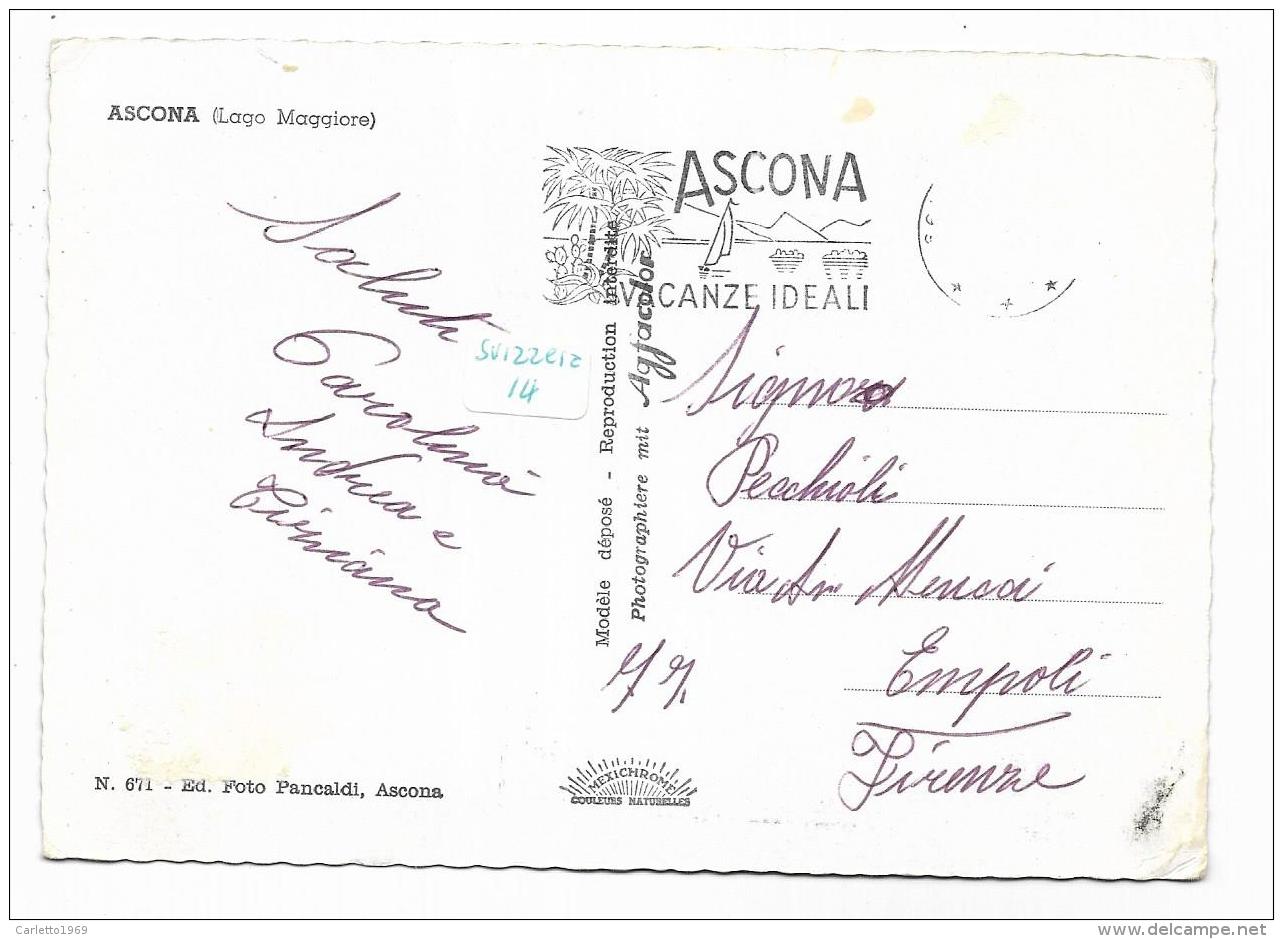 ASCONA (Lago Maggiore)
ASCONA
VACANZE IDEALI
Saluti
Carolina
Andrea e
Tiziana
Svizzera
14
Modèle déposé - Reproduction interdite
Photographiere mit Agfacolor
Signora
Pecchioli
Via
Empoli
Firenze
N. 671 - Ed. Foto Pancaldi, Ascona
MEXICHROME
COULEURS NATURELLES
Carletto1969
delcampe.net